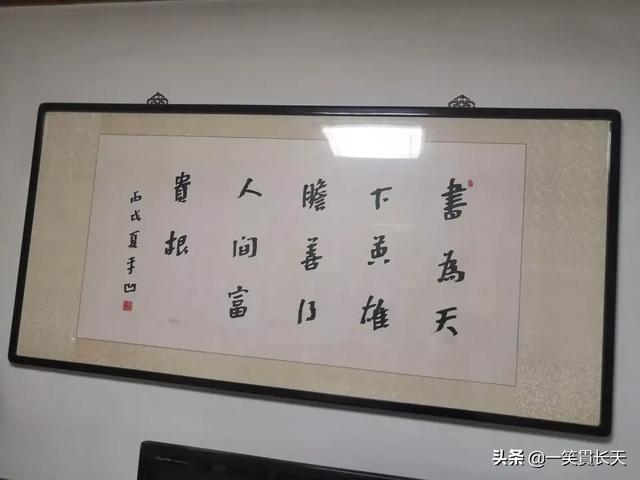 書為天
下英雄
膽善乃
人间富
貴根
丙戌夏平凹
头条 @一笑貫长天